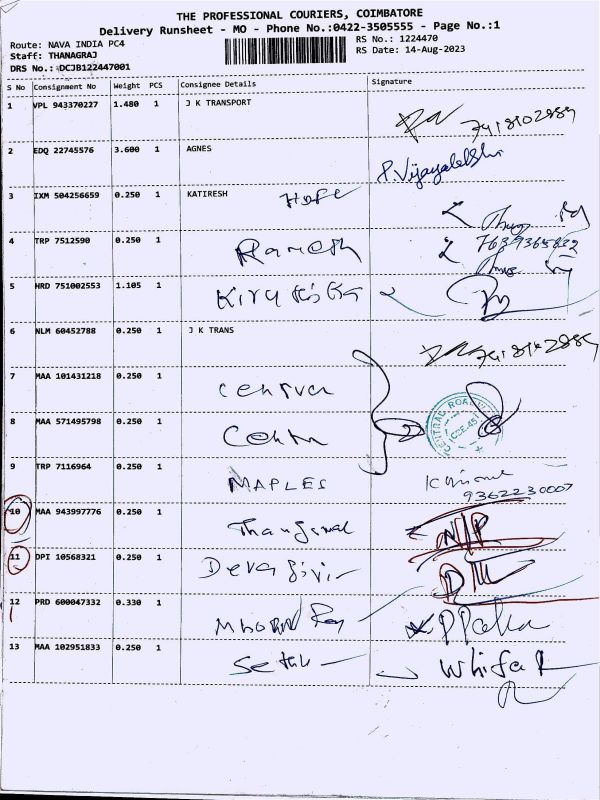 THE PROFESSIONAL COURIERS, COIMBATORE
Delivery Runsheet - MO - Phone No.:0422-3505555 - Page No.:1
Route: NAVA INDIA PC4
RS No.: 1224470
Staff: THANAGRAJ
RS Date: 14-Aug-2023
DRS No.: DCJB122447001
S No Consignment No Weight PCS Consignee Details Signature
1 VPL 943370227 1.480 1 J K TRANSPORT
2 EDQ 22745576 3.600 1 AGNES
P. Vijayalakshi
3 IXM 504256659 0.250 1 KATIRESH
4 TRP 7512590 0.250 1 Ramesh
5 HRD 751002553 1.105 1
6 NLM 60452788 0.250 1 J K TRANS
7 MAA 101431218 0.250 1
8 MAA 571495798 0.250 1
CENTRAL ROAD
9 TRP 7116964 0.250 1 MAPLES
9362230007
10 MAA 943997776 0.250 1 N/P
11 DPI 10568321 0.250 1
12 PRD 600047332 0.330 1
13 MAA 102951833 0.250 1